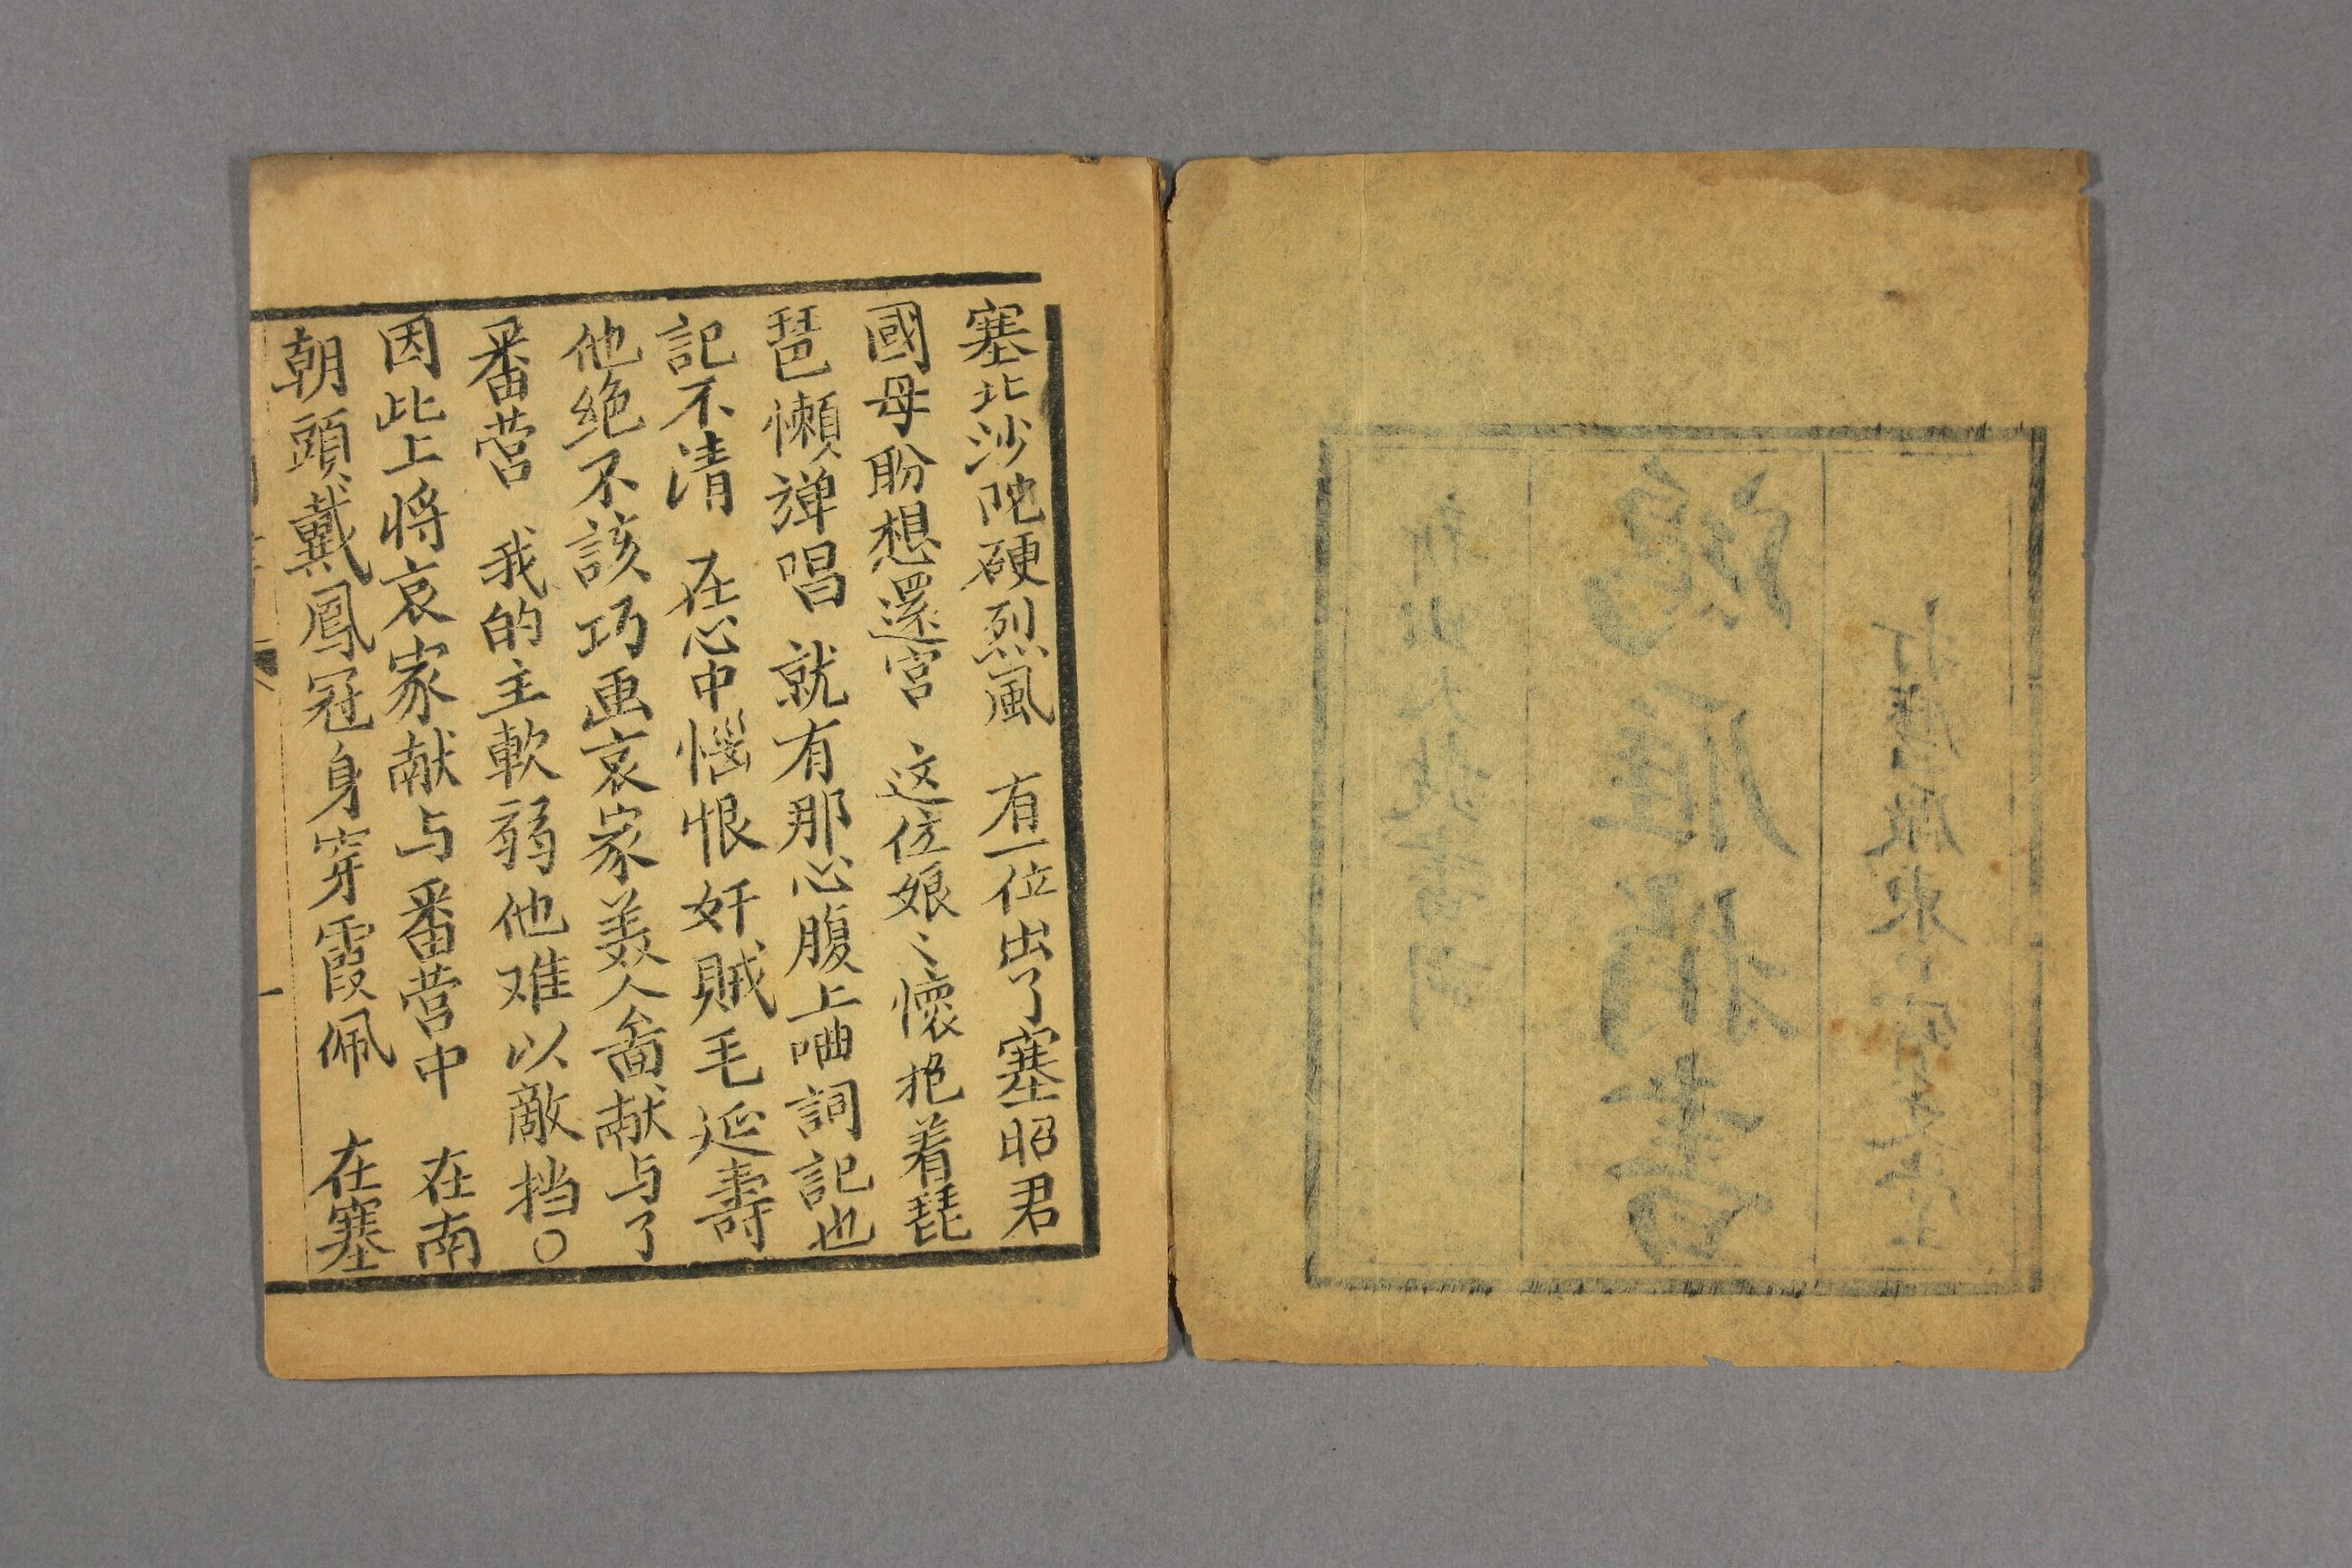 鴻雁捎書
新出大鼓書詞
塞北沙陀硬烈風　有一位出了塞昭君
國母盼想還宮　这位娘〻懷抱着琵
琶懶弹唱　就有那心腹上曲詞記也
記不清　在心中惱恨奸賊毛延壽
他绝不該巧画哀家美人啚献与了
番营　我的主軟弱他难以敵挡〇
因此上将哀家献与番营中　在南
朝頭戴鳳冠身穿霞佩　在塞
一